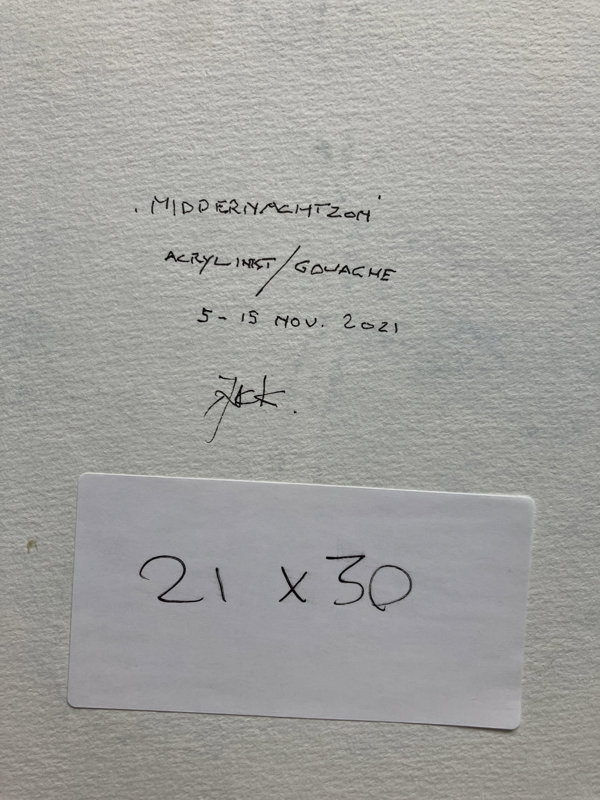 'MIDDERNACHTZON'
ACRYLINKT/GOUACHE
5-15 NOV. 2021
21 x 30